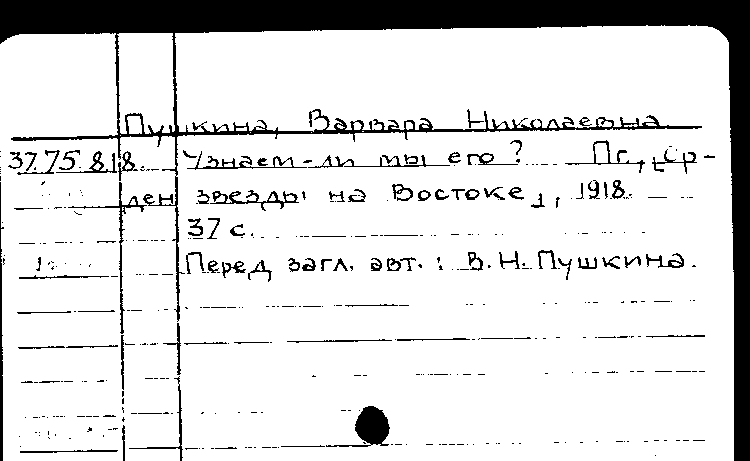 Пушкина, Варвара Николаевна
37.75.818. Узнаем-ли мы его? Пг., [Ор-
ден звезды на Востоке], 1918.
37 с.
Перед загл. авт.: В.Н. Пушкина.